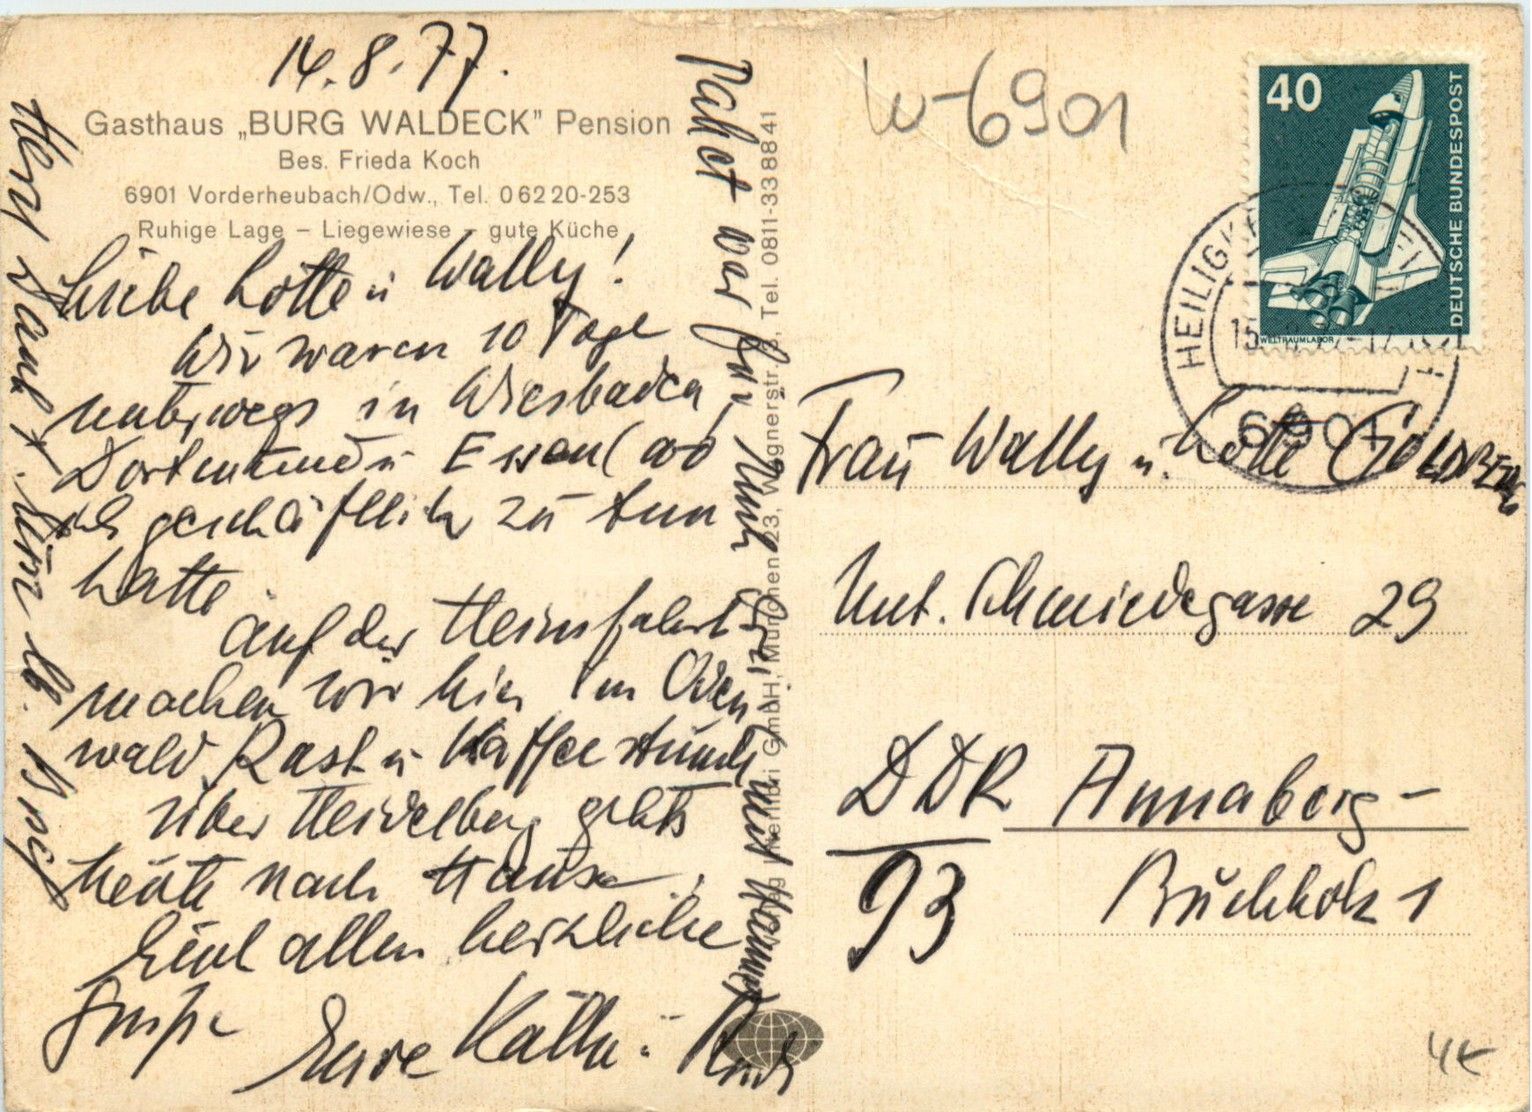 14.8.77.
Gasthaus „BURG WALDECK" Pension
Bes. Frieda Koch
6901 Vorderheubach/Odw., Tel. 0 62 20-253
Ruhige Lage – Liegewiese – gute Küche
Liebe Lotte u Wally!
Wir waren 10 Tage
unterwegs in Wiesbaden
Dortmund u Essen (wo
ich geschäftlich zu tun
hatte.
Auf der Heimfahrt
machen wir hier im Oden
wald Rast u Kaffeestunde
über Heidelberg gehts
heute nach Hause.
Euch allen herzliche
Grüße
Eure Käthe u
Herzl Dank f. Euren lb. Brief
Paket war für
GmbH, München 23, Wagnerstr. 3, Tel. 0811-33 88 41
W-6901
40
DEUTSCHE BUNDESPOST
WELTRAUMLABOR
HEILIG
6901
Frau Wally u. Lotte GOLDBERG
Unt. Schmiedegasse 29
DDR Annaberg-
93 Buchholz 1
4€